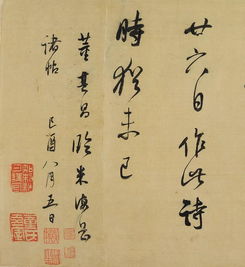 廿六日作此詩
時猶未已
董其昌臨米海岳
諸帖 己酉八月五日